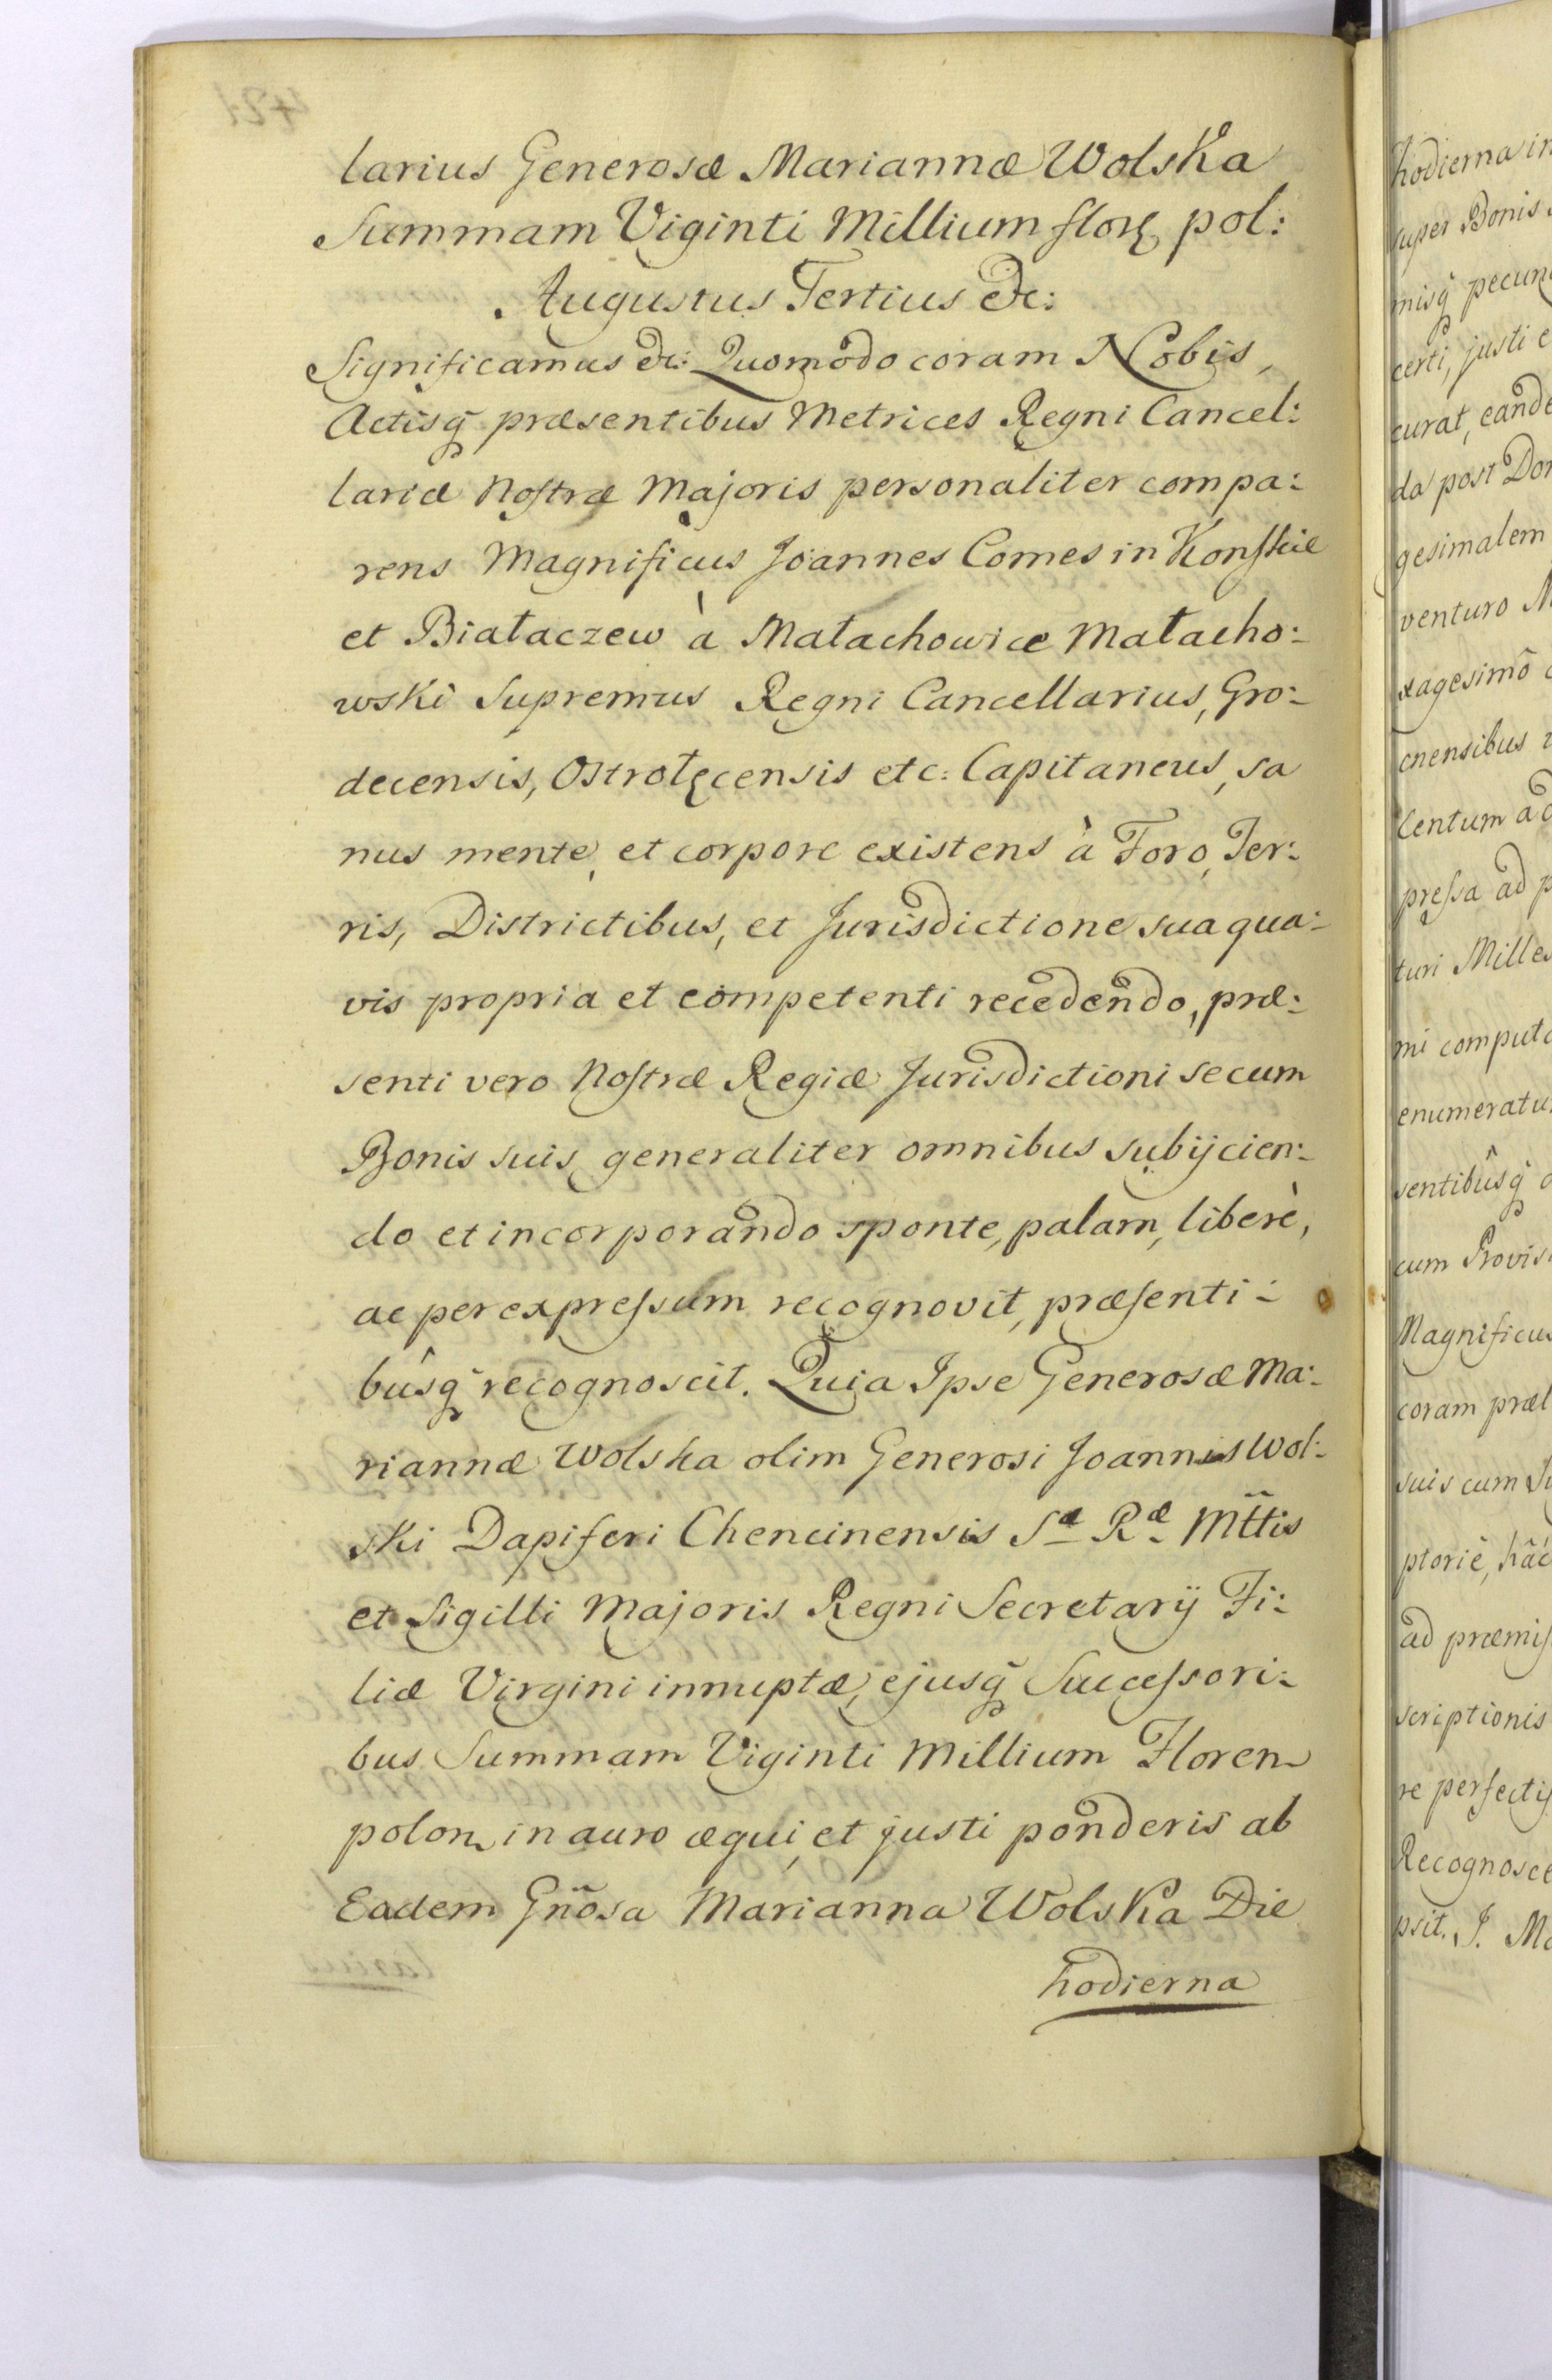 larius Generosæ Mariannæ Wolska
Summam Viginti Millium florꝝ pol:
Augustus Tertius &c:
Significamus &c: Quomodo coram Nobis,
Actisq̃ præsentibus Metrices Regni Cancel:
lariæ Nostræ Majoris personaliter compa:
rens Magnificus Joannes Comes in Konskie
et Białaczew à Małachowice Małacho:
wski Supremus Regni Cancellarius, Gro:
decensis, Ostrołęcensis etc: Capitaneus, sa
nus mente, et corpore existens à Foro, Ter:
ris, Districtibus, et Jurisdictione sua qua:
vis propria et competenti recedendo, præ:
senti vero Nostræ Regiæ Jurisdictioni se cum
Bonis suis generaliter omnibus subijcien:
do et incorporando sponte, palam, liberè,
ac per expressum recognovit, præsenti:
bûsq̃ recognoscit. Quia Ipse Generosæ Ma:
riannæ Wolska olim Generosi Joannis Wol:
ski Dapiferi Chencinensis Sæ Ræ Mttis
et Sigilli Majoris Regni Secretarij Fi:
liæ Virgini innuptæ, ejusq̃ Successori:
bus Summam Viginti Millium Floren
polon in auro æqui, et justi ponderis ab
Eadem Gñosa Marianna Wolska Die
hodierna
hodierna in
super Bonis
misq̃ pecun
certi, justi e
curat, eande
da post Dom
gesimalem
venturo M
xagesimô
cnensibus
Centum ad
pressa ad p
turi Milles
mi computa
enumeratu
sentibûsq̃
cum Provis
Magnificus
coram præ
suis cum
ptoriè, hâc
ad præmis
scriptionis
re perfectis
Recognosce
psit. J. Ma